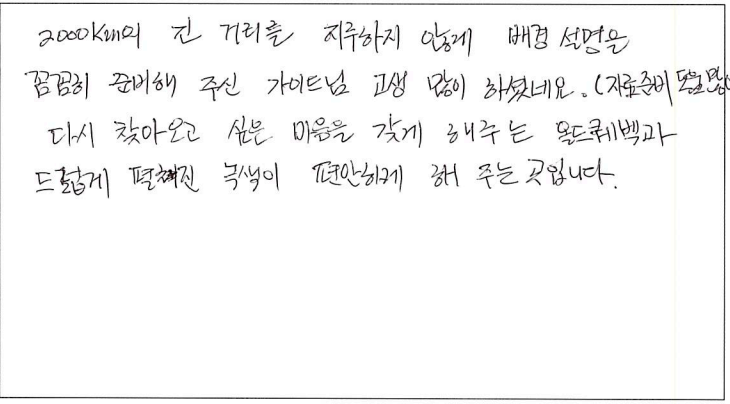 2000km의 긴 거리를 지루하지 않게 배경 설명을
꼼꼼히 준비해 주신 가이드님 고생 많이 하셨네요. (자료준비
다시 찾아오고 싶은 마음을 갖게 해주는 올드퀘벡과
드넓게 펼쳐진 녹색이 편안하게 해 주는 곳입니다.